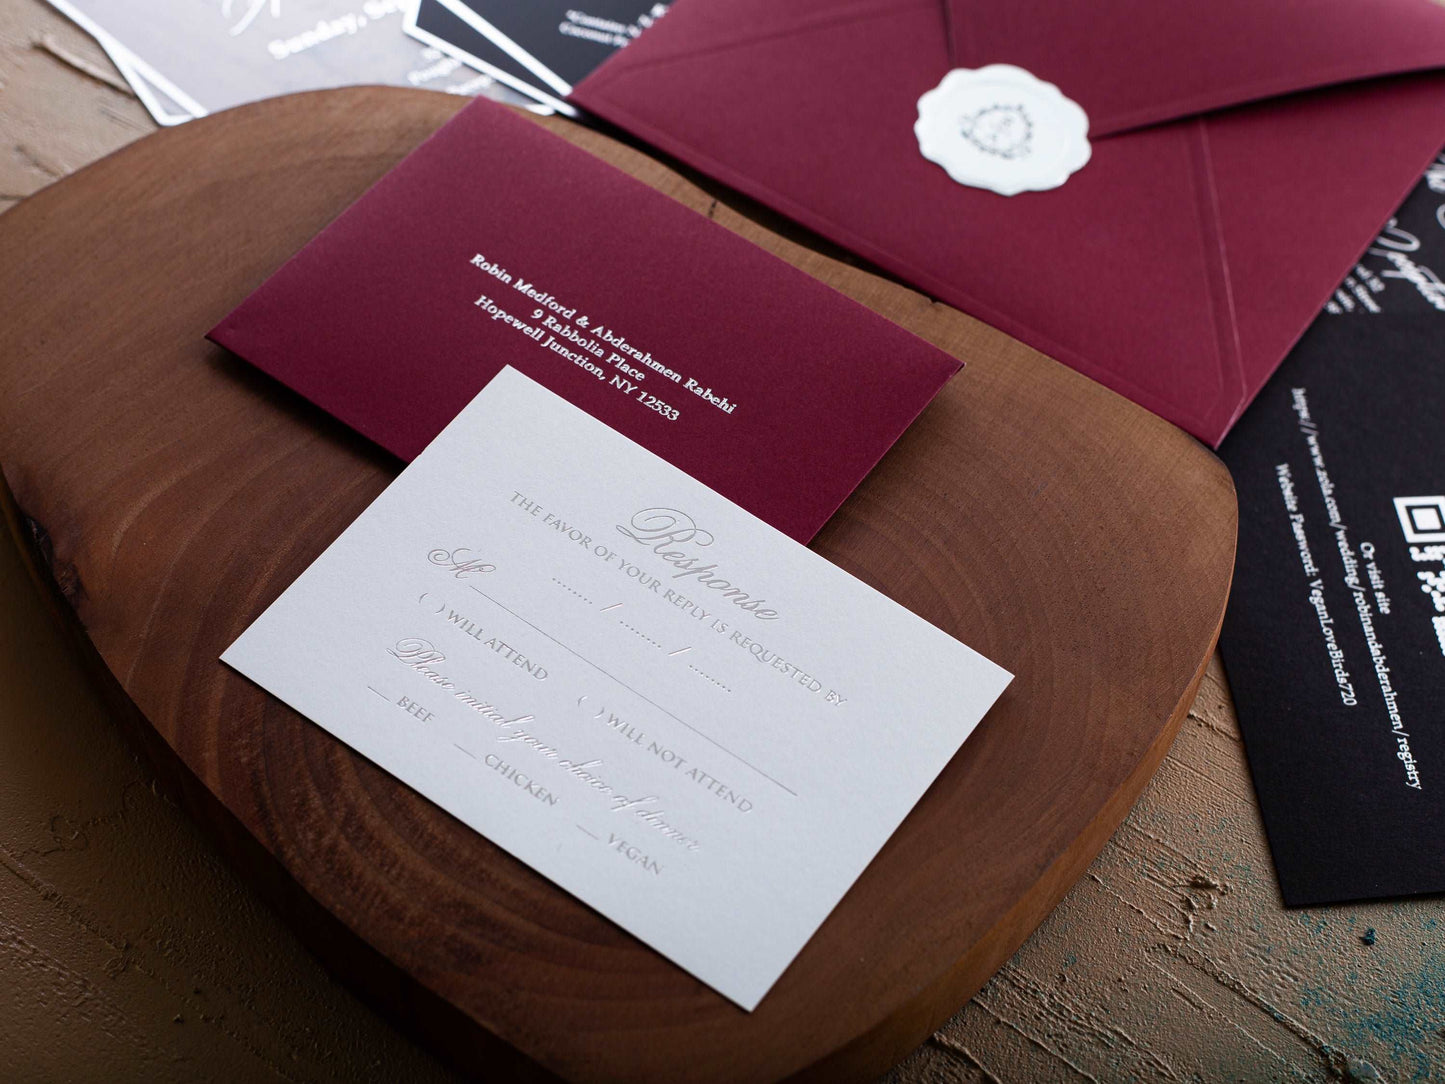 Sunday,
Robin Medford & Abderahmen Rabehi
9 Rabbolia Place
Hopewell Junction, NY 12533
Response
THE FAVOR OF YOUR REPLY IS REQUESTED BY
......... / .......... / .........
M
( ) WILL ATTEND ( ) WILL NOT ATTEND
Please initial your choice of dinner
__ BEEF __ CHICKEN __ VEGAN
Or visit site
https://www.zola.com/wedding/robinandabderahmen/registry
Website Password: VeganLoveBirds720